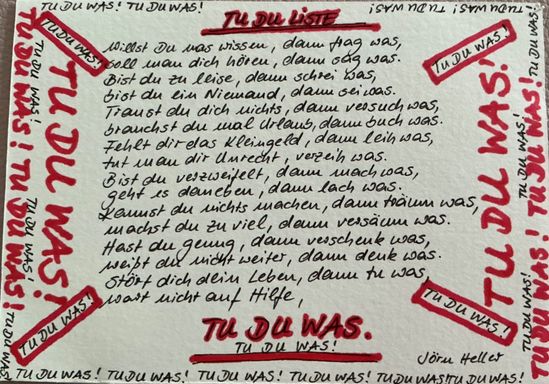 TU DU WAS! TU DU WAS!
TU DU LISTE
TU DU WAS! TU DU WAS!
TU DU WAS!
TU DU WAS!
Willst Du was wissen, dann frag was,
soll man dich hören, dann sag was.
Bist du zu leise, dann schrei was,
bist du ein Niemand, dann sei was.
Traust du dich nichts, dann versuch was,
brauchst du mal Urlaub, dann buch was.
Fehlt dir das Kleingeld, dann leih was,
tut man dir Unrecht, verzeih was.
Bist du verzweifelt, dann mach was,
geht es daneben, dann lach was.
Kannst du nichts machen, dann träum was,
machst du zu viel, dann versäum was.
Hast du genug, dann verschenk was,
weißt du nicht weiter, dann denk was.
Stört dich dein Leben, dann tu was,
wart nicht auf Hilfe,
TU DU WAS.
TU DU WAS!
Jörn Heller
TU DU WAS! TU DU WAS!
TU DU WAS!
TU DU WAS!
TU DU WAS!
TU DU WAS!
TU DU WAS!
TU DU WAS! TU DU WAS!
TU DU WAS!
TU DU WAS!
TU DU WAS!
TU DU WAS!
TU DU WAS! TU DU WAS! TU DU WAS! TU DU WAS! TU DU WAS! TU DU WAS!